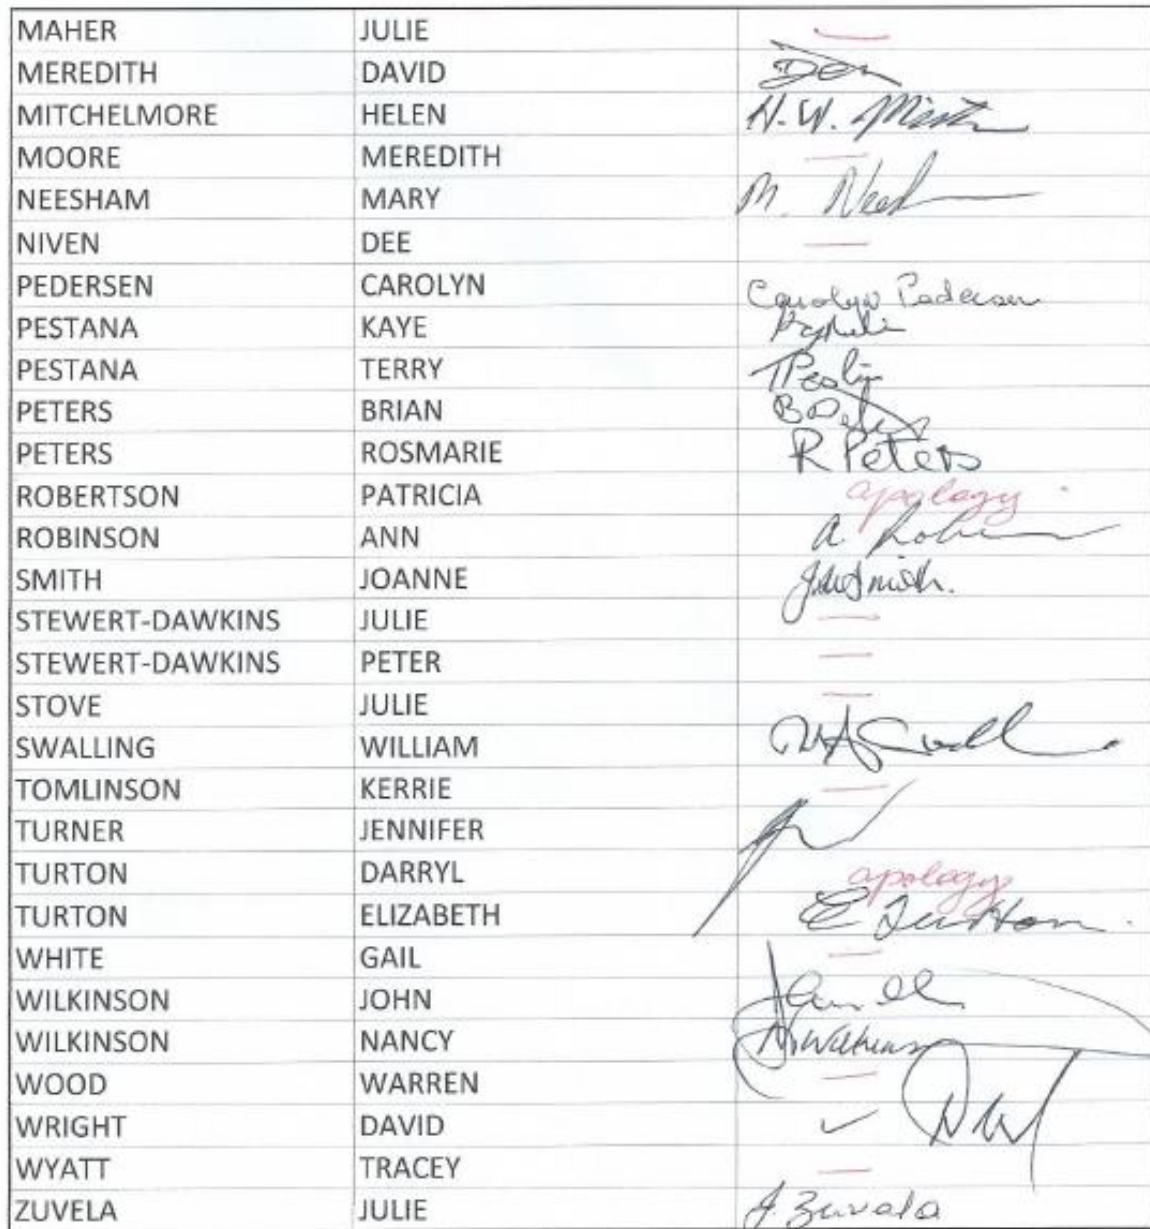 MAHER JULIE
MEREDITH DAVID
MITCHELMORE HELEN H. W.
MOORE MEREDITH
NEESHAM MARY M. Neesh
NIVEN DEE
PEDERSEN CAROLYN Carolyn Pedersen
PESTANA KAYE
PESTANA TERRY
PETERS BRIAN
PETERS ROSMARIE R Peters
ROBERTSON PATRICIA apology
ROBINSON ANN
SMITH JOANNE
STEWERT-DAWKINS JULIE
STEWERT-DAWKINS PETER
STOVE JULIE
SWALLING WILLIAM
TOMLINSON KERRIE
TURNER JENNIFER
TURTON DARRYL apology
TURTON ELIZABETH
WHITE GAIL
WILKINSON JOHN
WILKINSON NANCY
WOOD WARREN
WRIGHT DAVID ✓
WYATT TRACEY
ZUVELA JULIE J Zuvela